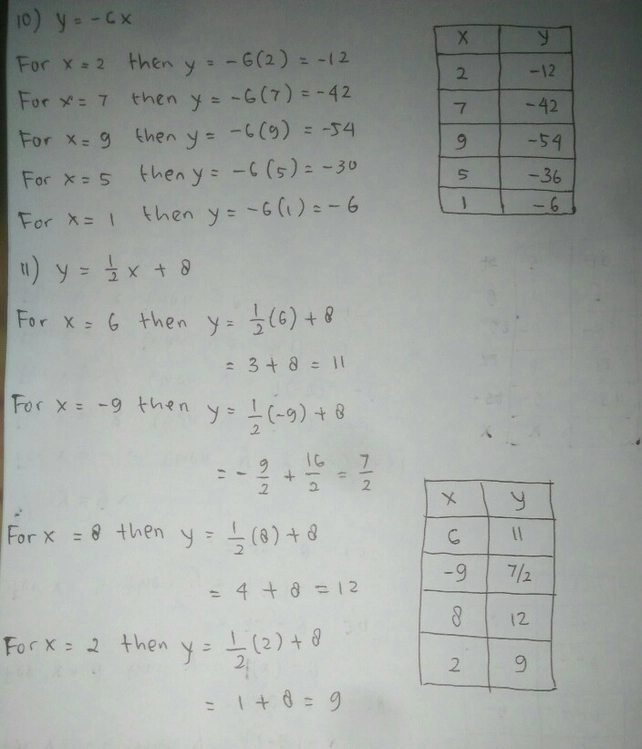 10) y = -6x
For x = 2 then y = -6(2) = -12
For x = 7 then y = -6(7) = -42
For x = 9 then y = -6(9) = -54
For x = 5 then y = -6(5) = -30
For x = 1 then y = -6(1) = -6
x y
2 -12
7 -42
9 -54
5 -36
1 -6
11) y = 1/2 x + 8
For x = 6 then y = 1/2 (6) + 8
= 3 + 8 = 11
For x = -9 then y = 1/2 (-9) + 8
= - 9/2 + 16/2 = 7/2
For x = 8 then y = 1/2 (8) + 8
= 4 + 8 = 12
For x = 2 then y = 1/2 (2) + 8
= 1 + 8 = 9
x y
6 11
-9 7/2
8 12
2 9